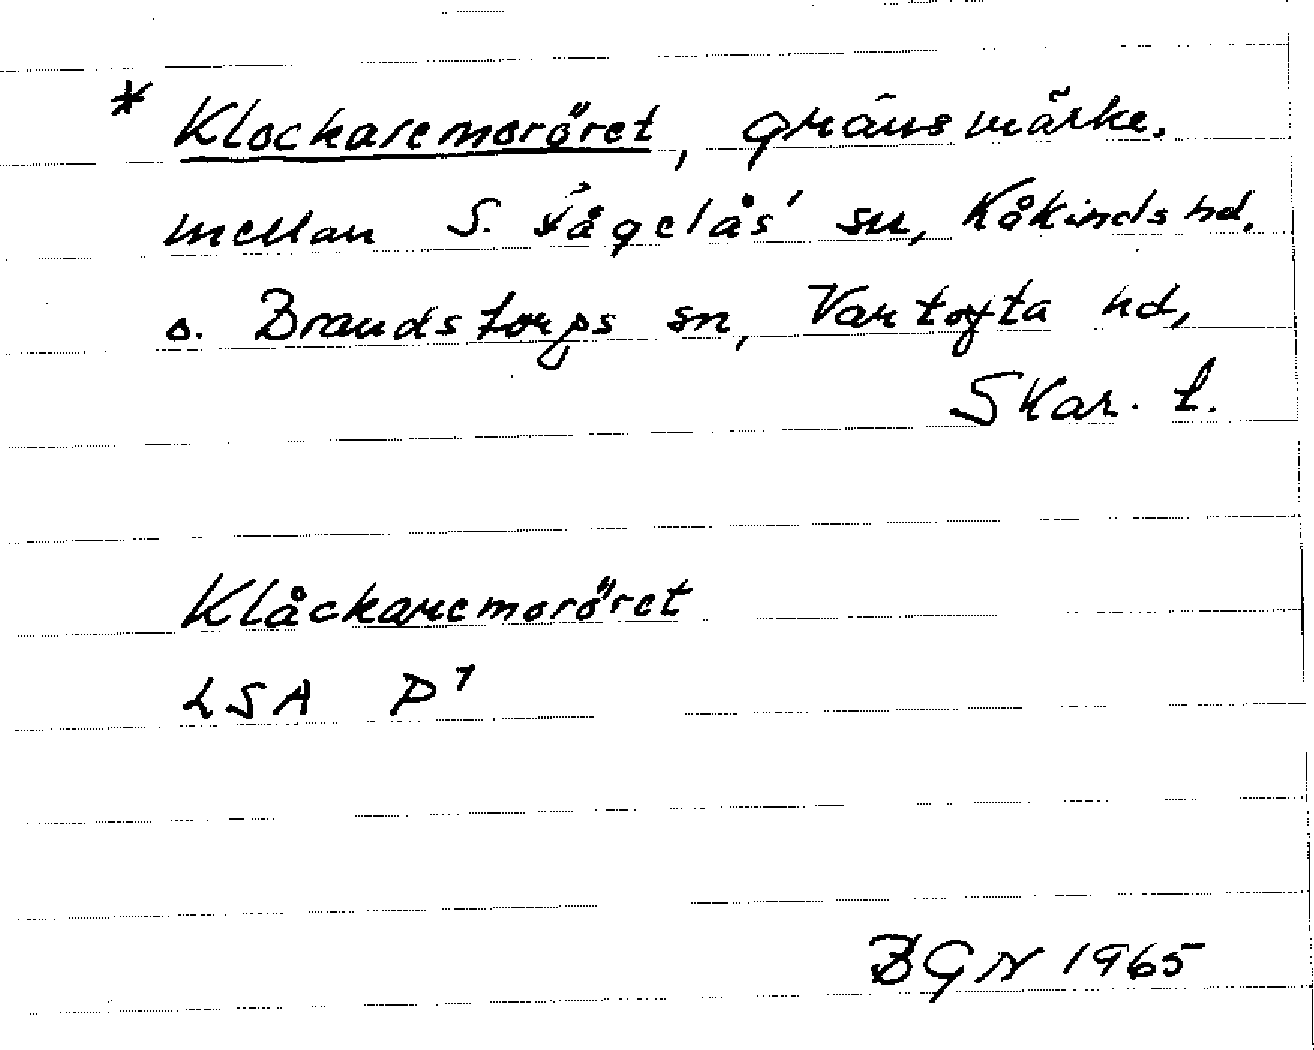 * Klockaremoröret, gränsmärke.
mellan S. Fågelås' sn, Kåkinds hd.
o. Brandstorps sn, Vartofta hd,
Skar. l.
Klåckaremoröret
LSA P7
BGN 1965